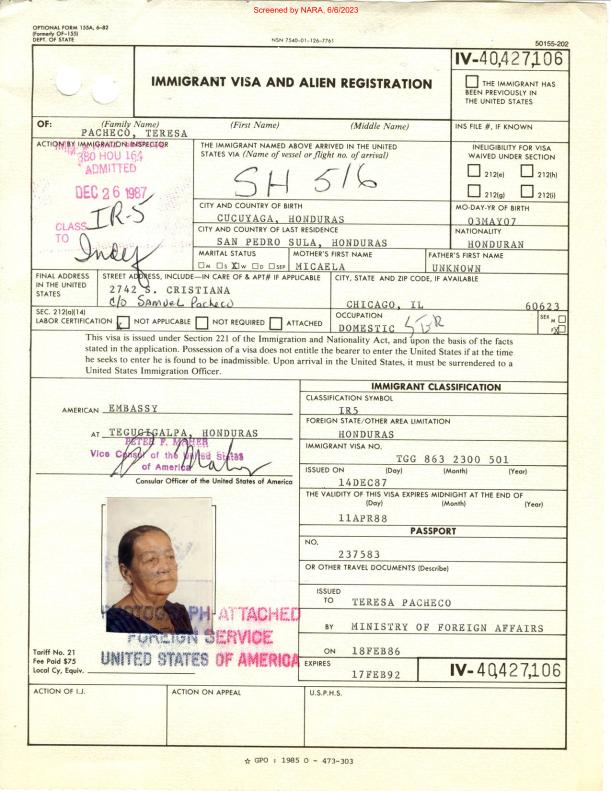 Screened by NARA, 6/6/2023
OPTIONAL FORM 155A, 6-82
(Formerly OF-155)
DEPT. OF STATE
NSN 7540-01-126-7761
50155-202
IMMIGRANT VISA AND ALIEN REGISTRATION
IV-40,427,106
THE IMMIGRANT HAS
BEEN PREVIOUSLY IN
THE UNITED STATES
OF: (Family Name) (First Name) (Middle Name)
PACHECO, TERESA
INS FILE #, IF KNOWN
ACTION BY IMMIGRATION INSPECTOR
380 HOU 164
ADMITTED
DEC 26 1987
CLASS IR-5
TO Indef
THE IMMIGRANT NAMED ABOVE ARRIVED IN THE UNITED
STATES VIA (Name of vessel or flight no. of arrival)
SH 516
INELIGIBILITY FOR VISA
WAIVED UNDER SECTION
212(e) 212(h)
212(g) 212(i)
CITY AND COUNTRY OF BIRTH
CUCUYAGA, HONDURAS
MO-DAY-YR OF BIRTH
03MAY07
CITY AND COUNTRY OF LAST RESIDENCE
SAN PEDRO SULA, HONDURAS
NATIONALITY
HONDURAN
MARITAL STATUS
M S X W D SEP
MOTHER'S FIRST NAME
MICAELA
FATHER'S FIRST NAME
UNKNOWN
FINAL ADDRESS
IN THE UNITED
STATES
STREET ADDRESS, INCLUDE—IN CARE OF & APT# IF APPLICABLE
2742 S. CRISTIANA
c/o Samuel Pacheco
CITY, STATE AND ZIP CODE, IF AVAILABLE
CHICAGO, IL 60623
SEC. 212(a)(14)
LABOR CERTIFICATION
NOT APPLICABLE NOT REQUIRED ATTACHED
OCCUPATION
DOMESTIC
SEX M
F X
This visa is issued under Section 221 of the Immigration and Nationality Act, and upon the basis of the facts
stated in the application. Possession of a visa does not entitle the bearer to enter the United States if at the time
he seeks to enter he is found to be inadmissible. Upon arrival in the United States, it must be surrendered to a
United States Immigration Officer.
AMERICAN EMBASSY
AT TEGUCIGALPA, HONDURAS
PETER F. MAHER
Vice Consul of the United States
of America
Consular Officer of the United States of America
IMMIGRANT CLASSIFICATION
CLASSIFICATION SYMBOL
IR5
FOREIGN STATE/OTHER AREA LIMITATION
HONDURAS
IMMIGRANT VISA NO.
TGG 863 2300 501
ISSUED ON (Day) (Month) (Year)
14DEC87
THE VALIDITY OF THIS VISA EXPIRES MIDNIGHT AT THE END OF
(Day) (Month) (Year)
11APR88
PASSPORT
NO.
237583
OR OTHER TRAVEL DOCUMENTS (Describe)
ISSUED
TO TERESA PACHECO
BY MINISTRY OF FOREIGN AFFAIRS
ON 18FEB86
EXPIRES 17FEB92
PHOTOGRAPH ATTACHED
FOREIGN SERVICE
UNITED STATES OF AMERICA
Tariff No. 21
Fee Paid $75
Local Cy, Equiv.
IV-40,427,106
ACTION OF I.J.
ACTION ON APPEAL
U.S.P.H.S.
☆ GPO : 1985 O - 473-303